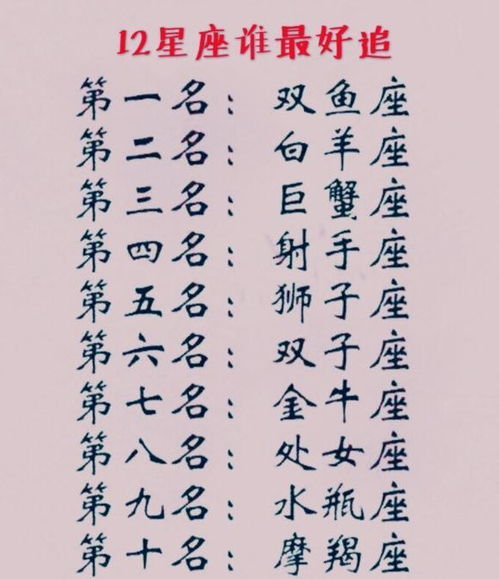 12星座谁最好追
第一名：双鱼座
第二名：白羊座
第三名：巨蟹座
第四名：射手座
第五名：狮子座
第六名：双子座
第七名：金牛座
第八名：处女座
第九名：水瓶座
第十名：摩羯座